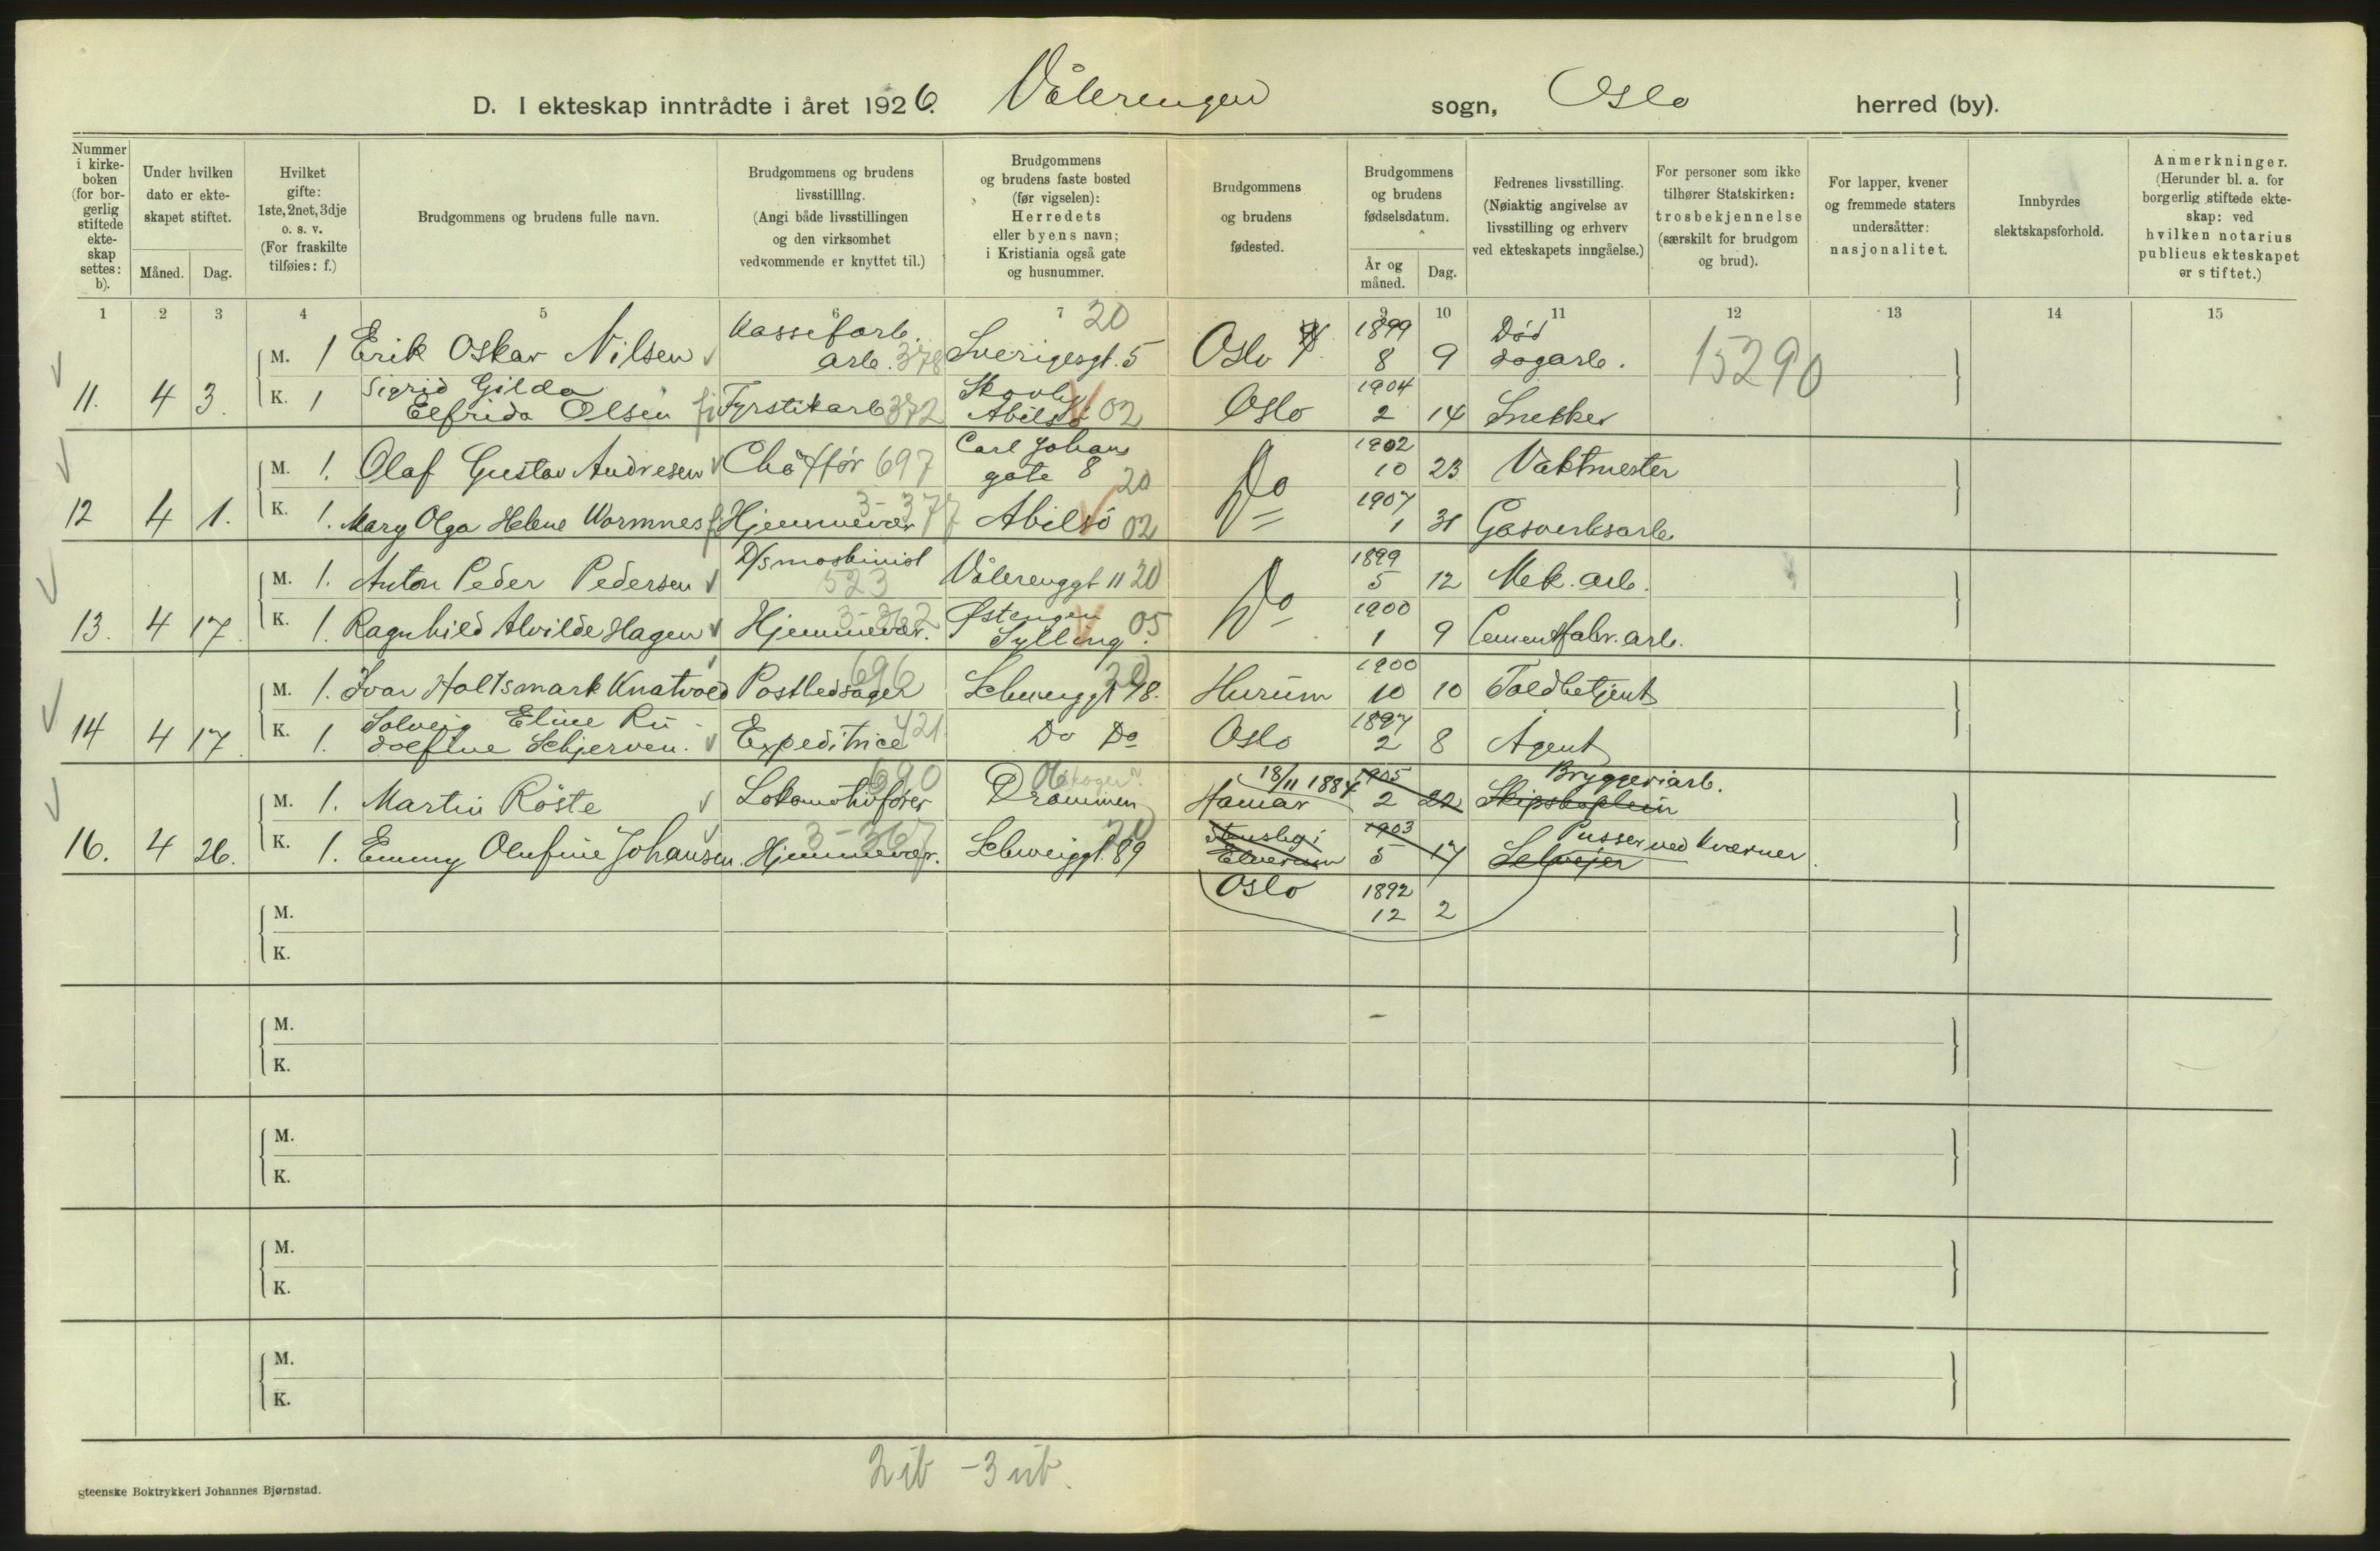 D. I ekteskap inntrådte i året 1926. Vålerengen sogn, Oslo herred (by).
Nummer i kirke- boken (for bor- gerlig stiftede ekte- skap settes: b).
Under hvilken dato er ekte- skapet stiftet.
Måned. Dag.
Hvilket gifte: 1ste, 2net, 3dje o. s. v. (For fraskilte tilføies: f.)
Brudgommens og brudens fulle navn.
Brudgommens og brudens livsstilling. (Angi både livsstillingen og den virksomhet vedkommende er knyttet til.)
Brudgommens og brudens faste bosted (før vigselen): Herredets eller byens navn; i Kristiania også gate og husnummer.
Brudgommens og brudens fødested.
Brudgommens og brudens fødselsdatum.
År og måned. Dag.
Fedrenes livsstilling. (Nøiaktig angivelse av livsstilling og erhverv ved ekteskapets inngåelse.)
For personer som ikke tilhører Statskirken: trosbekjennelse (særskilt for brudgom og brud).
For lapper, kvener og fremmede staters undersåtter: nasjonalitet.
Innbyrdes slektskapsforhold.
Anmerkninger. (Herunder bl. a. for borgerlig stiftede ekte- skap: ved hvilken notarius publicus ekteskapet er stiftet.)
1 2 3 4 5 6 7 8 9 10 11 12 13 14 15
M. 1 Erik Oskar Nilsen Kassefarb. arb. 378 Sverigesgt. 5 20 Oslo 1899 8 9 Død dagarb. 15290
11. 4 3. K. 1 Sigrid Gilda Elfrida Olsen Fyrstikarb 372 Skovly Abilsö 02 Oslo 1904 2 14 Snekker
M. 1. Olaf Gustav Andresen Chåffør 697 Carl Johans gate 8 20 Do 1902 10 23 Vaktmester
12 4 1. K. 1. Mary Olga Helene Wormnes Hjemmevær 3-377 Abilsö 02 1907 1 31 Gasverksarb.
M. 1. Anton Peder Pedersen D/s maskinist 523 Vålerenggt 11 20 Do 1899 5 12 Mek. arb.
13. 4 17. K. 1. Ragnhild Alvilde Hagen Hjemmevær. 3-362 Østengen Sylling 05 1900 1 9 Cementfabr. arb.
M. 1. Ivar Holtsmark Knatvold Postledsager 696 Schweiggt 78. 20 Hurum 1900 10 10 Toldbetjent
14 4 17 K. 1. Solveig Eline Ru- dolfine Schjerven. Expeditrice 421 Do Do Oslo 1897 2 8 Agent
M. 1. Martin Röste Lokomotivfører 690 Drammen Hamar 18/11 1884 1905 2 22 Bryggeriarb. Skipskaptein
16. 4 26. K. 1. Emmy Olufine Johansen. Hjemmevær. 3-367 Schweiggt. 89 20 Elverum 1903 5 17 Pusser ved Kværner.
Oslo 1892 12 2
M.
K.
M.
K.
M.
K.
M.
K.
M.
K.
2 ib - 3 ub.
gteenske Boktrykkeri Johannes Bjørnstad.